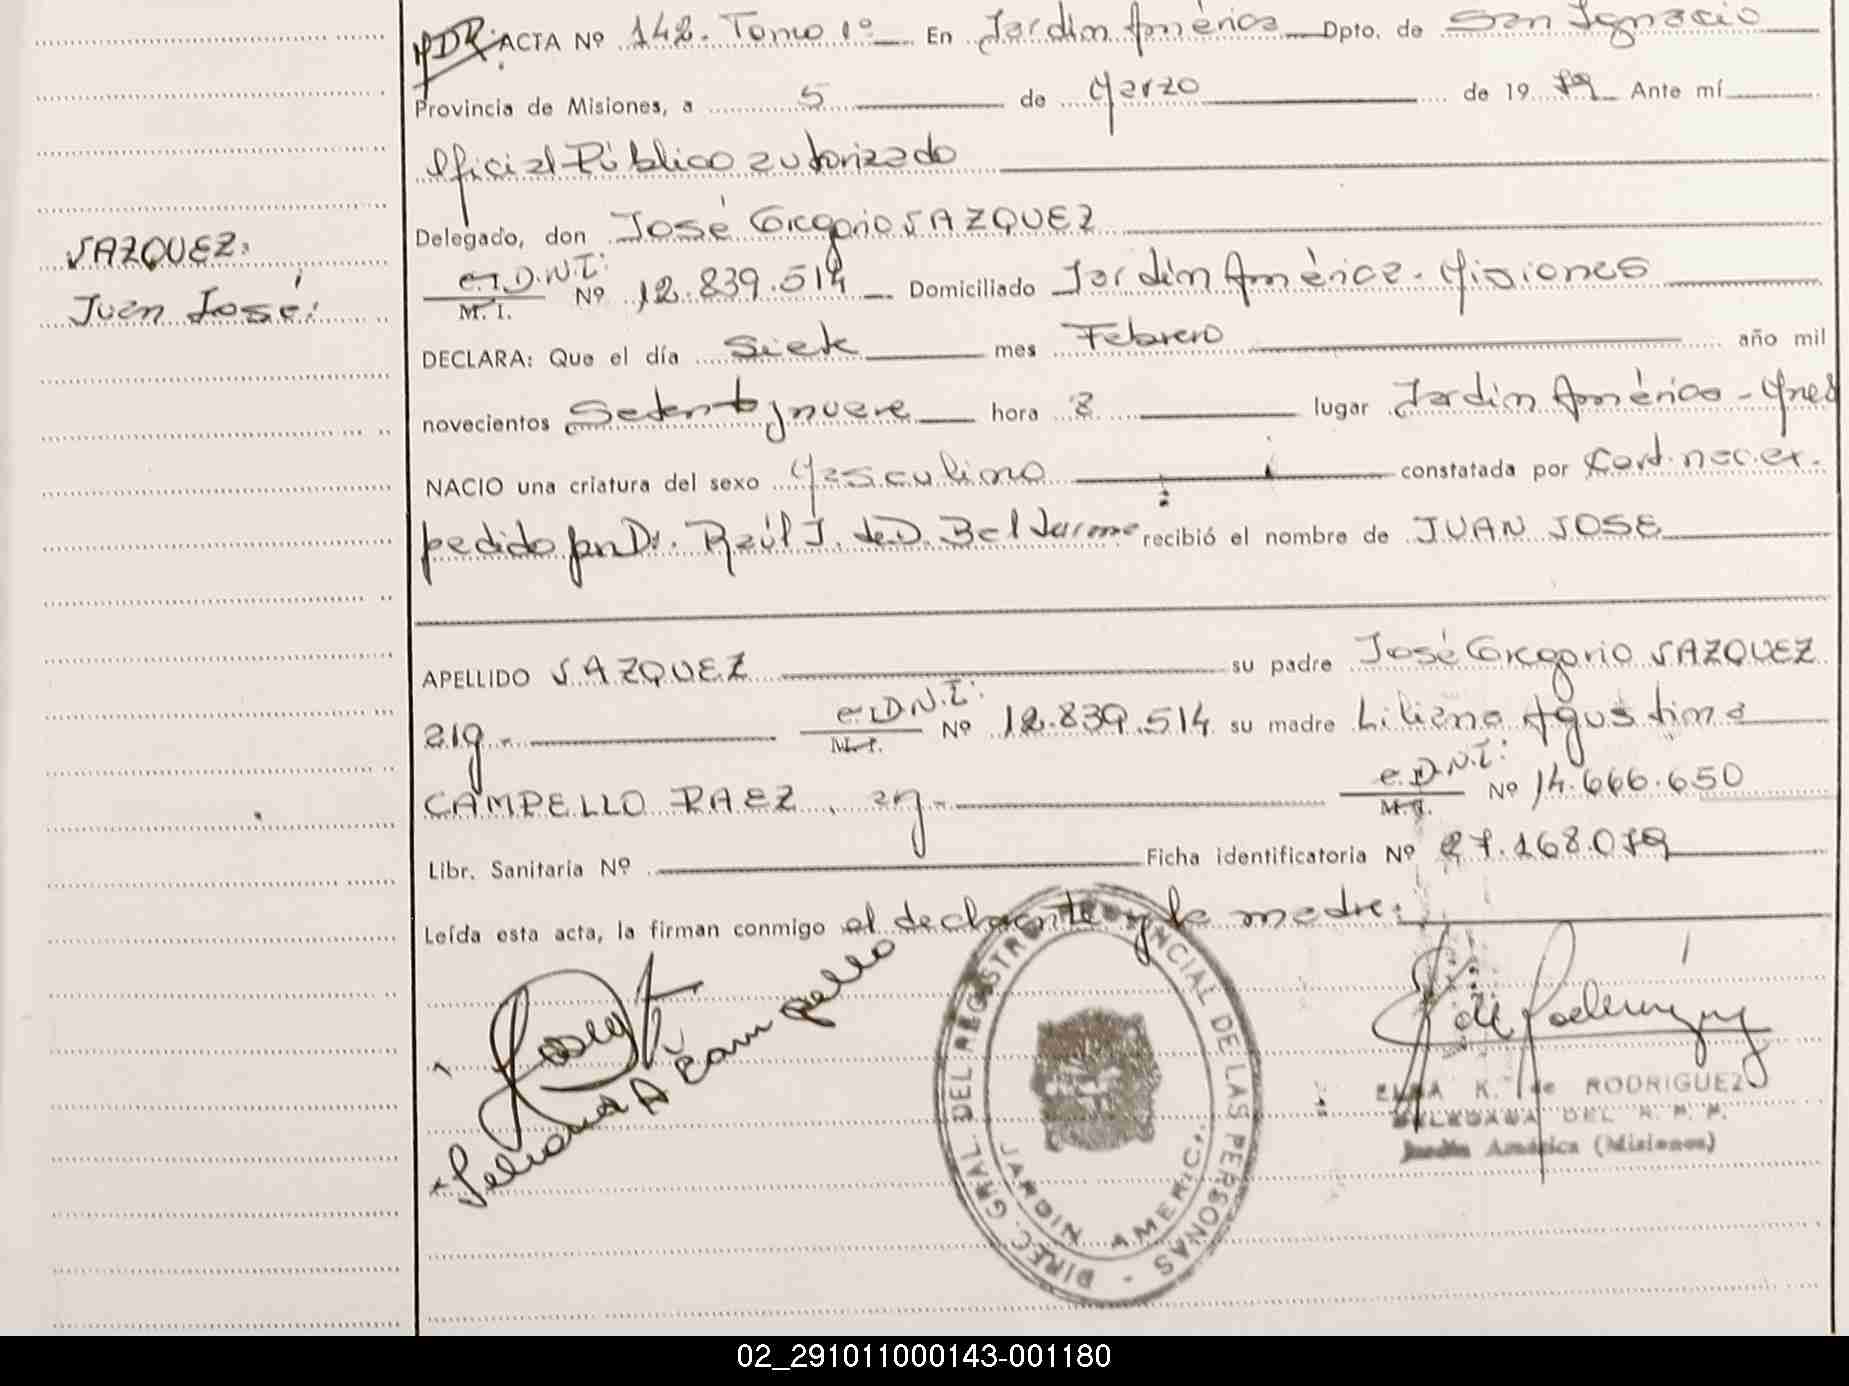 ACTA Nº 142. Tomo 1º En Jardín América Dpto. de San Ignacio
Provincia de Misiones, a 5 de Marzo de 1979 Ante mí
Oficial Público autorizado
VAZQUEZ:
Juan José:
Delegado, don José Gregorio VAZQUEZ
c.I.D.N.I:
M. I. Nº 12.839.514 Domiciliado Jardín América - Misiones
DECLARA: Que el día Siete mes Febrero año mil
novecientos Setenta y nueve hora 8 lugar Jardín América - Mnes
NACIO una criatura del sexo Masculino constatada por Cert. nac. ex.
pedido por Dr. Raúl J. de D. recibió el nombre de JUAN JOSE
APELLIDO VAZQUEZ su padre José Gregorio VAZQUEZ
arg.- c.D.N.I: M.I. Nº 12.839.514 su madre Liliana Agustina
CAMPELLO PAEZ, arg.- c.D.N.I: M.I. Nº 14.666.650
Libr. Sanitaria Nº Ficha identificatoria Nº 27.168.079
Leída esta acta, la firman conmigo el declarante y la madre:
Liliana A Campello
DIREC. GRAL. DEL REGISTRO PROVINCIAL DE LAS PERSONAS -
JARDIN AMERICA
K. de RODRIGUEZ
DELEGADA DEL R. P. P.
Jardín América (Misiones)
02_291011000143-001180